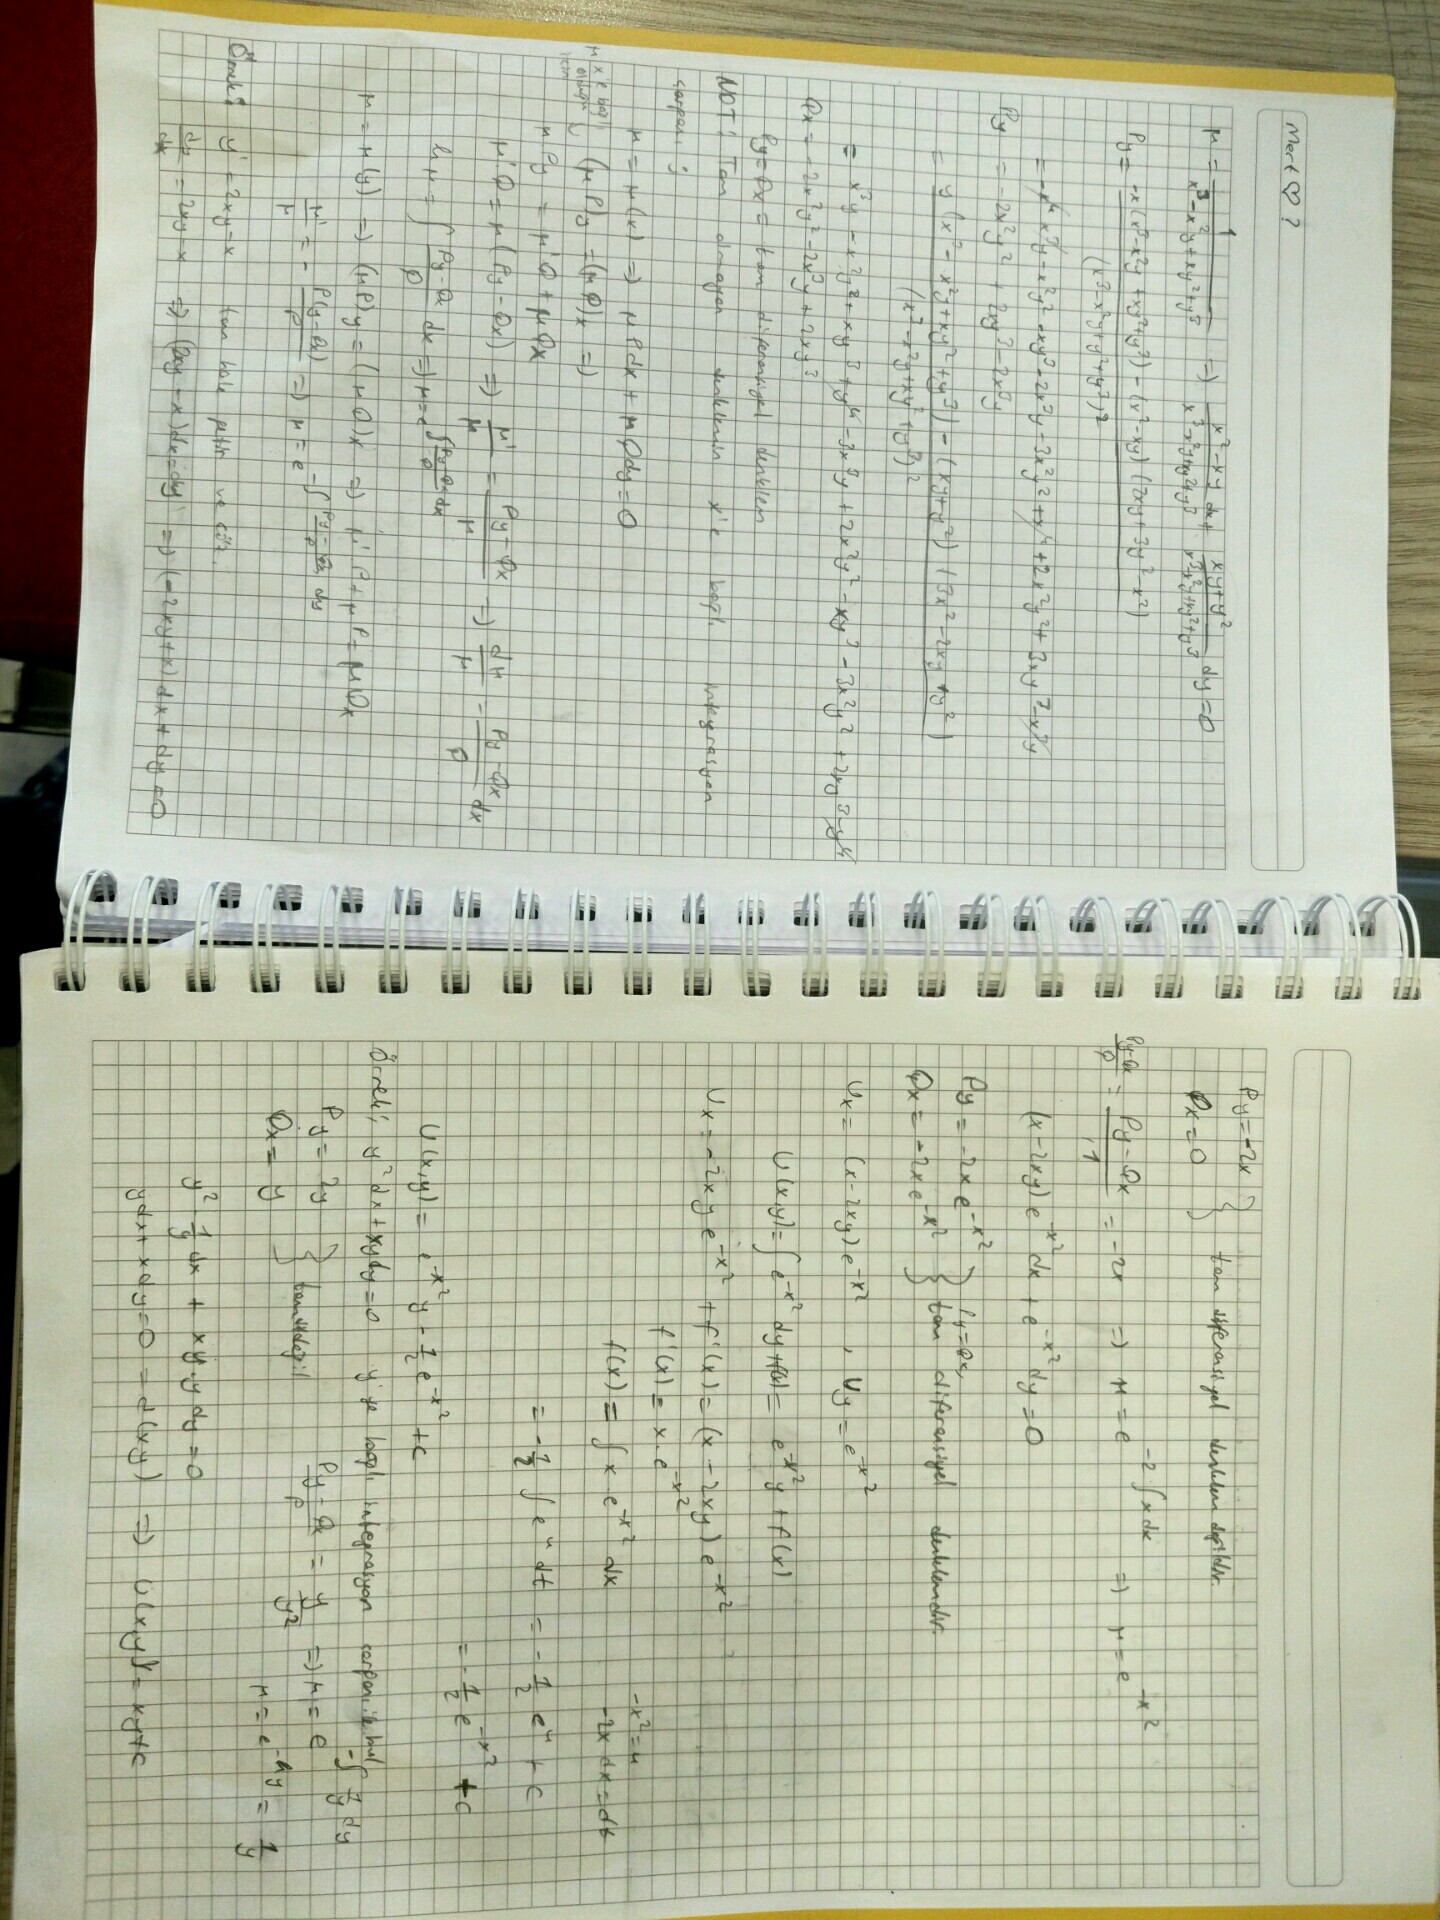 Mert ♡ ?
μ = 1/(x³-x²y+xy²+y³) => (x²-xy)/(x³-x²y+xy²+y³) dx + (xy+y²)/(x³-x²y+xy²+y³) dy = 0
Py = (-x(x³-x²y+xy²+y³) - (x²-xy)(2xy+3y²-x²))/(x³-x²y+y²+y³)²
= -x⁴ x³y - x²y² - xy³ - 2x³y - 3x²y² + x⁴ + 2x²y² + 3xy³ - x³y
Py = -2x²y² + 2xy³ - 2x³y
= (y(x³-x²y+xy²+y³) - (xy+y²)(3x²-2xy+y²))/(x³-x²y+xy²+y³)²
= x³y - x²y² + xy³ + y⁴ - 3x³y + 2x²y² - xy³ - 3x²y² + 2xy³ - y⁴
Qx = -2x²y² - 2x³y + 2xy³
Py = Qx = tam diferansiyel denklem
NOT: Tam olmayan denklemin x'e bağlı integrasyon
çarpanı ;
μ = μ(x) => μPdx + μQdy = 0
μ x'e bağlı olduğu için (μP)y = (μQ)x =>
μPy = μ'Q + μQx
μ'Q = μ(Py-Qx) => μ'/μ = (Py-Qx)/μ => dμ/μ = (Py-Qx)/Q dx
ln μ = ∫ (Py-Qx)/Q dx => μ = e^(∫ (Py-Qx)/Q dx)
μ = μ(y) => (μP)y = (μQ)x => μ'P + μP = μQx
μ'/μ = - P(y-Qx)/P => μ = e^(-∫ (Py-Qx)/P dy)
Örnek: y' = 2xy-x tam hale getir ve çöz.
dy/dx = 2xy-x => (2xy-x)dx = dy => (-2xy+x)dx + dy = 0
Py = -2x
Qx = 0 } tam diferansiyel denklem değildir.
(Py-Qx)/Q = (Py-Qx)/1 = -2x => μ = e^(-2∫x dx) => μ = e^(-x²)
(x-2xy)e^(-x²)dx + e^(-x²)dy = 0
Py = -2xe^(-x²) Py=Qx,
Qx = -2xe^(-x²) } tam diferansiyel denklemdir.
Ux = (x-2xy)e^(-x²) , Uy = e^(-x²)
U(x,y) = ∫e^(-x²)dy+f(x) = e^(-x²)y + f(x)
Ux = -2xye^(-x²) + f'(x) = (x-2xy)e^(-x²)
f'(x) = x.e^(-x²)
f(x) = ∫x e^(-x²) dx -x² = u
-2x dx = dt
= -1/2 ∫e^u dt = -1/2 e^u + c
= -1/2 e^(-x²) + c
U(x,y) = e^(-x²)y - 1/2 e^(-x²) + c
Örnek: y²dx + xydy = 0 y'ye bağlı integrasyon çarpanı bul
Py = 2y
Qx = y } tam değil (Py-Qx)/P = y/y² => μ = e^(-∫ 1/y dy)
μ = e^(-ln y) = 1/y
y² . 1/y dx + xy.y dy = 0
ydx + xdy = 0 = d(xy) => U(x,y) = xy+c